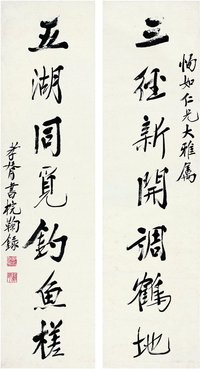 三徑新開調鶴地
惕如仁兄大雅屬
五湖同覓釣魚槎
孝胥書祝鞠錄